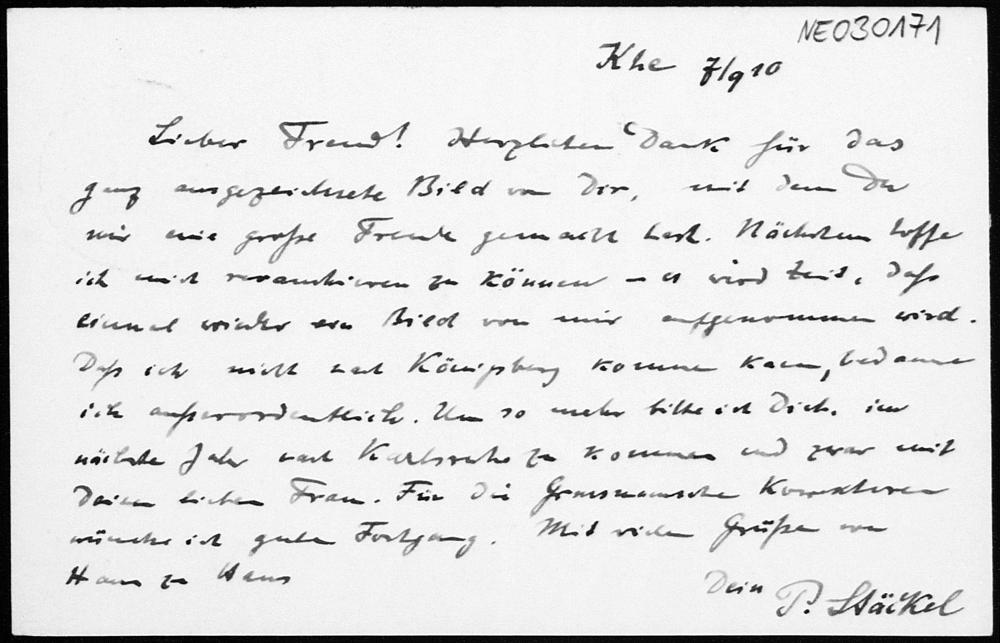 NE030171
Khe 7/9 10
Lieber Freund! Herzlichen Dank für das
ganz ausgezeichnete Bild von Dir, mit dem Du
mir eine große Freude gemacht hast. Nächstens hoffe
ich mich revanchieren zu können – es wird Zeit, daß
einmal wieder ein Bild von mir aufgenommen wird.
Daß ich nicht nach Königsberg kommen kann, bedaure
ich außerordentlich. Um so mehr bitte ich Dich, im
nächsten Jahr nach Karlsruhe zu kommen und zwar mit
Deiner lieben Frau. Für die Grassmannschen Korrekturen
wünsche ich guten Fortgang. Mit vielen Grüßen von
Haus zu Haus
Dein P. Stäckel